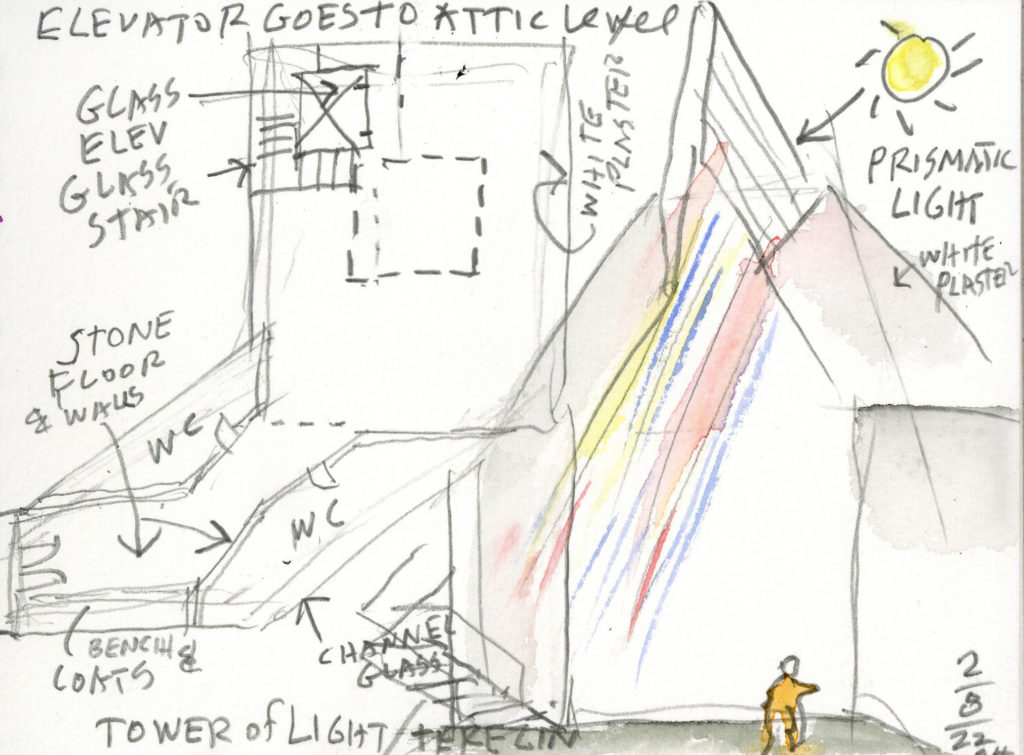 ELEVATOR GOES TO ATTIC LEVEL
GLASS
ELEV
GLASS
STAIR
WHITE
PLASTER
PRISMATIC
LIGHT
WHITE
PLASTER
STONE
FLOOR
& WALLS
WC
WC
BENCH &
COATS
CHANNEL
GLASS
TOWER of LIGHT TEREZIN
2
8
22